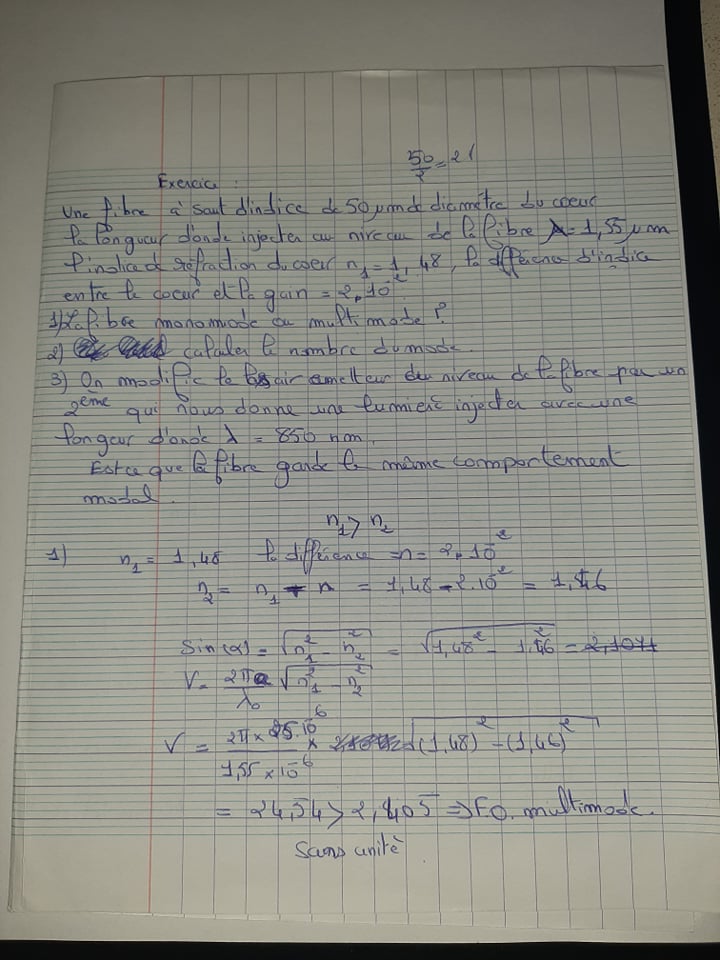 50/2 = 2
Exercice :
Une fibre à saut d'indice de 50 μm de diamètre du coeur
la longueur d'onde injecter au niveau de la fibre λ = 1,55 μm
l'indice de réfraction du coeur n₁ = 1,48, la différence d'indice
entre le coeur et la gain = 2.10⁻².
1) La fibre monomode ou multimode ?
2) calculer le nombre du mode.
3) On modifie le émetteur du niveau de la fibre par un
2ème qui nous donne une lumière injecter avec une
longeur d'onde λ = 850 nm.
Est ce que la fibre garde le même comportement
modal.
n₁ > n₂
1) n₁ = 1,48 la différence = n = 2.10⁻²
n₂ = n₁ - n = 1,48 - 2.10⁻² = 1,46
Sin(α) = √(n₁² - n₂²) = √(1,48² - 1,46²) = 2,1071
V = 2πa/λ₀ √(n₁² - n₂²)
V = (2π × 25.10⁻⁶)/(1,55 × 10⁻⁶) × √((1,48)² - (1,46)²)
= 24,54 > 2,405 ⇒ F.O. multimode.
Sans unité